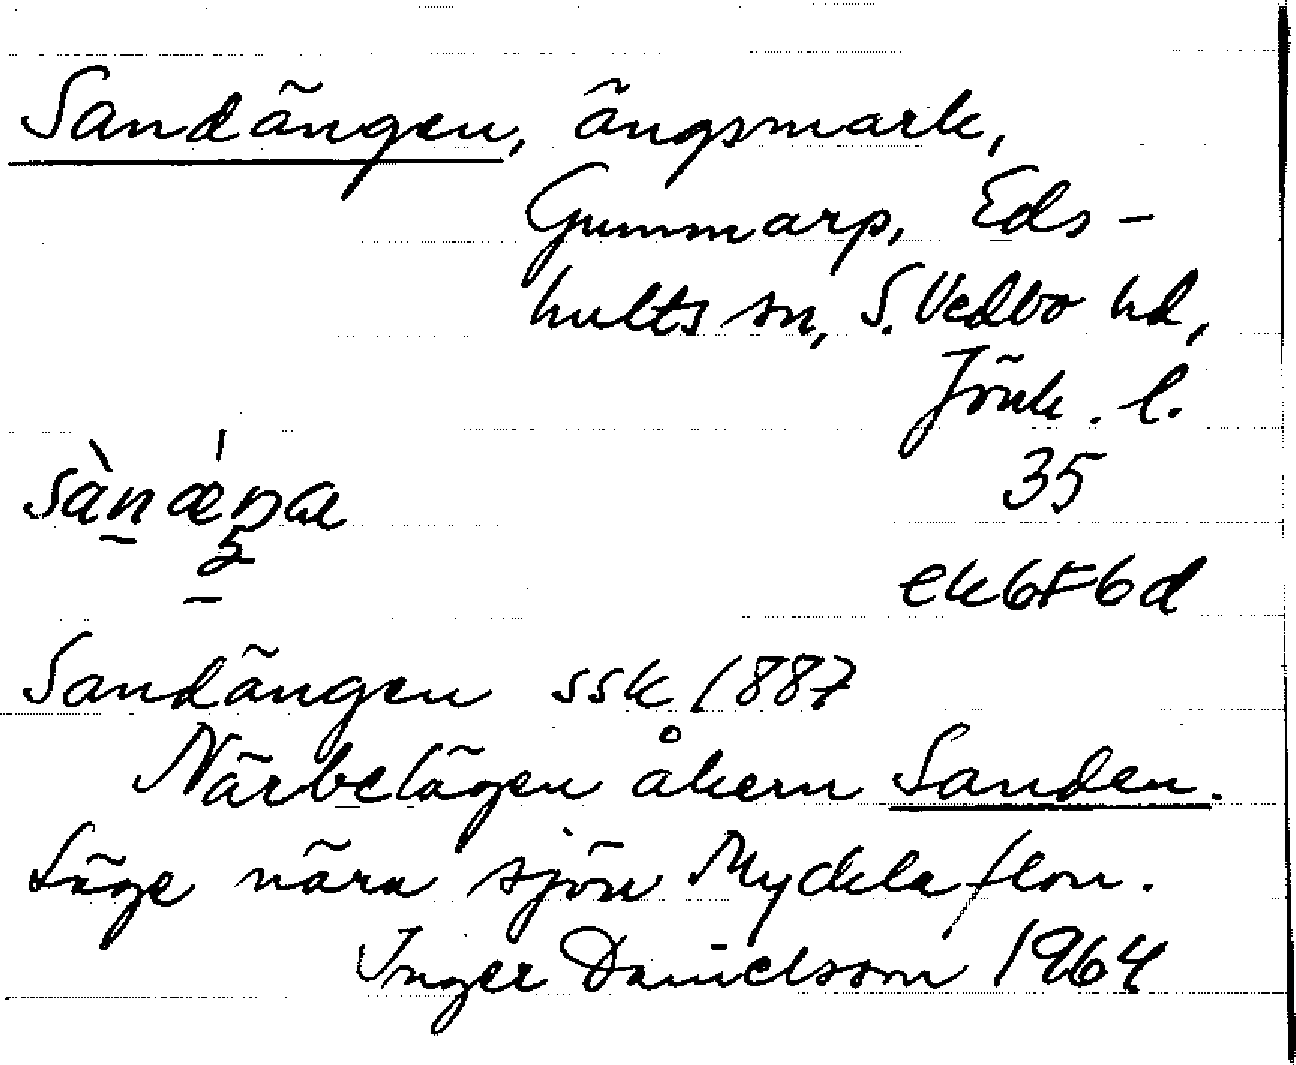 Sandängen, ängsmark,
Gummarp, Eds-
hults sn, S. Vedbo hd,
Jönk. l.
35
ek6F6d
Sandängen ssk 1887
Närbelägen åkern Sanden.
Läge nära sjön Mycklaflon.
Inger Danielsson 1964